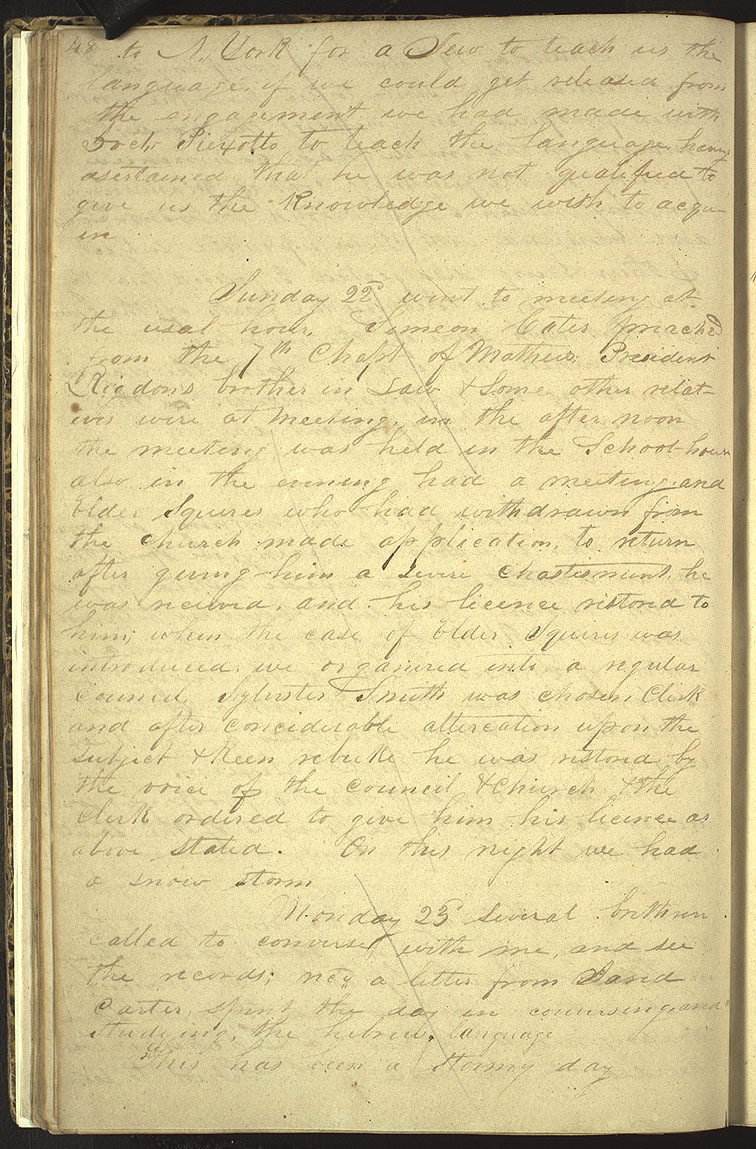 48 to N. York for a Jew to teach us the
language, if we could get released from
the engagement we had made with
Doct Piexotto to teach the language, having
asertained that he was not qualified to
give us the knowledge we wish to acqu-
ire
Sunday 22d went to meeting at
the usal hour. Simeon Cater preachd
from the 7th Chapt of Mathew; President
Rigdons brother in Law & some other relat-
ives were at meeting, in the after noon
the meeting was held in the School-house
also in the evening had a meeting, and
Elder Squires who had withdrawn from
the Church made application, to return
after giving him a severe chastisment, he
was recieved, and his licence restored to
him; when the case of Elder Squires was
introduced; we organized into a regular
council, Sylvester Smith was chosen Clerk
and after conciderable altercation upon the
subject & keen rebuke he was restored by
the voice of the council & Church & the
clerk ordered to give him his licence as
above stated. On this night we had
a snow storm
Monday 23d several brethren
called to converse with me, and see
the records; recd a letter from Jared
Carter, spent the day in conversing and
studying, the hebrew, language
This has been a stormy day